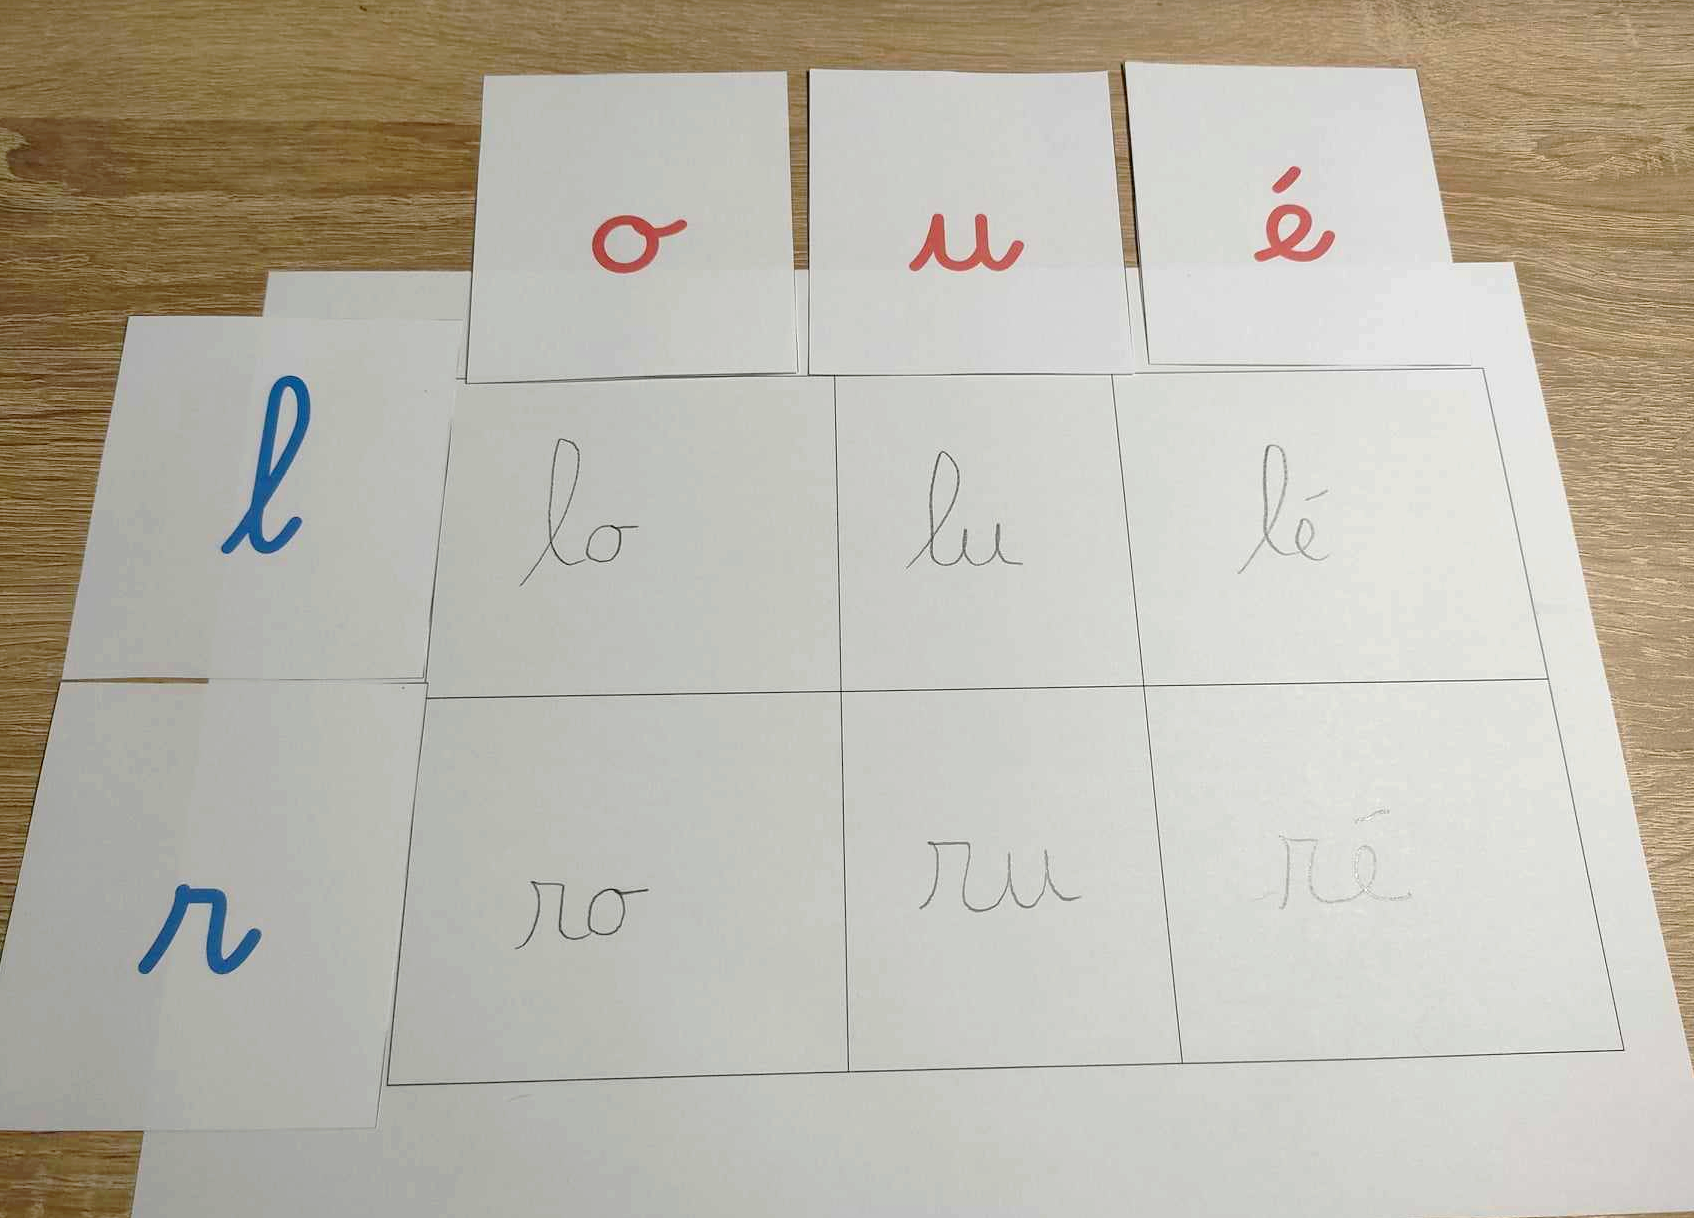 o u é
l lo lu lé
r ro ru ré